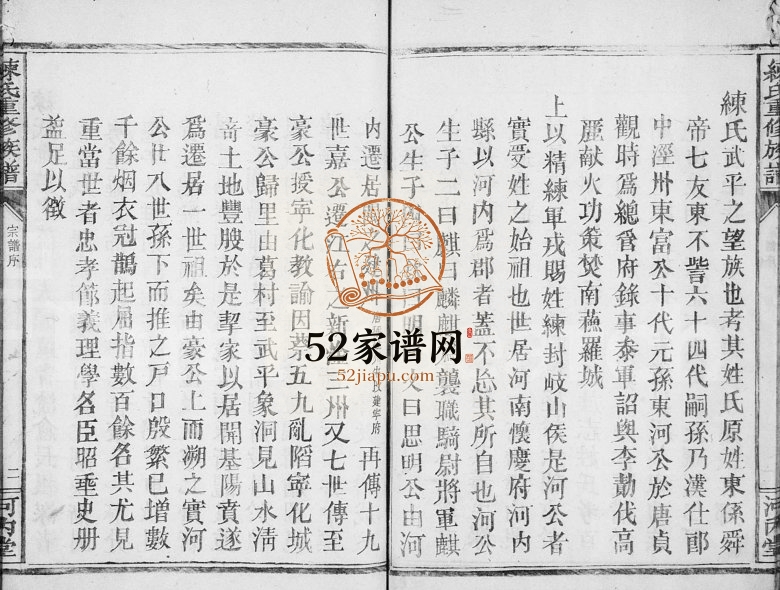 練氏重修族譜
練氏武平之望族也考其姓氏原姓東係舜
帝七友東不訾六十四代嗣孫乃漢仕郎
中涇州東富公十代元孫東河公於唐貞
觀時為總管府錄事叅軍詔與李勣伐高
麗献火功策焚南蘓羅城
上以精練軍戎賜姓練封岐山侯是河公者
實受姓之始祖也世居河南懷慶府河內
縣以河內為郡者蓋不忘其所自也河公
生子二曰麒曰麟麒襲職騎尉將軍麒
公生子 曰明 又曰思明公由河
河內堂
內遷居 建州 建寧府 再傳十九
世嘉公遷江右之新 三州又七世傳至
豪公授寜化教諭因葉五九亂陷寜化城
豪公歸里由葛村至武平象洞見山水淸
奇土地豐腴於是挈家以居開基陽賁遂
爲遷居一世祖矣由豪公上而溯之實河
公廿八世孫下而推之户口殷繁已增數
千餘烟衣冠鵲起屈指數百餘名其尤見
重當世者忠孝節義理學名臣昭垂史册
葢足以徵
練氏重修族譜
宗譜序
二
河內堂
52家谱网
52jiapu.com